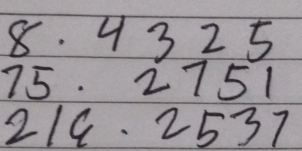 8. 4325
75. 2751
214. 2537